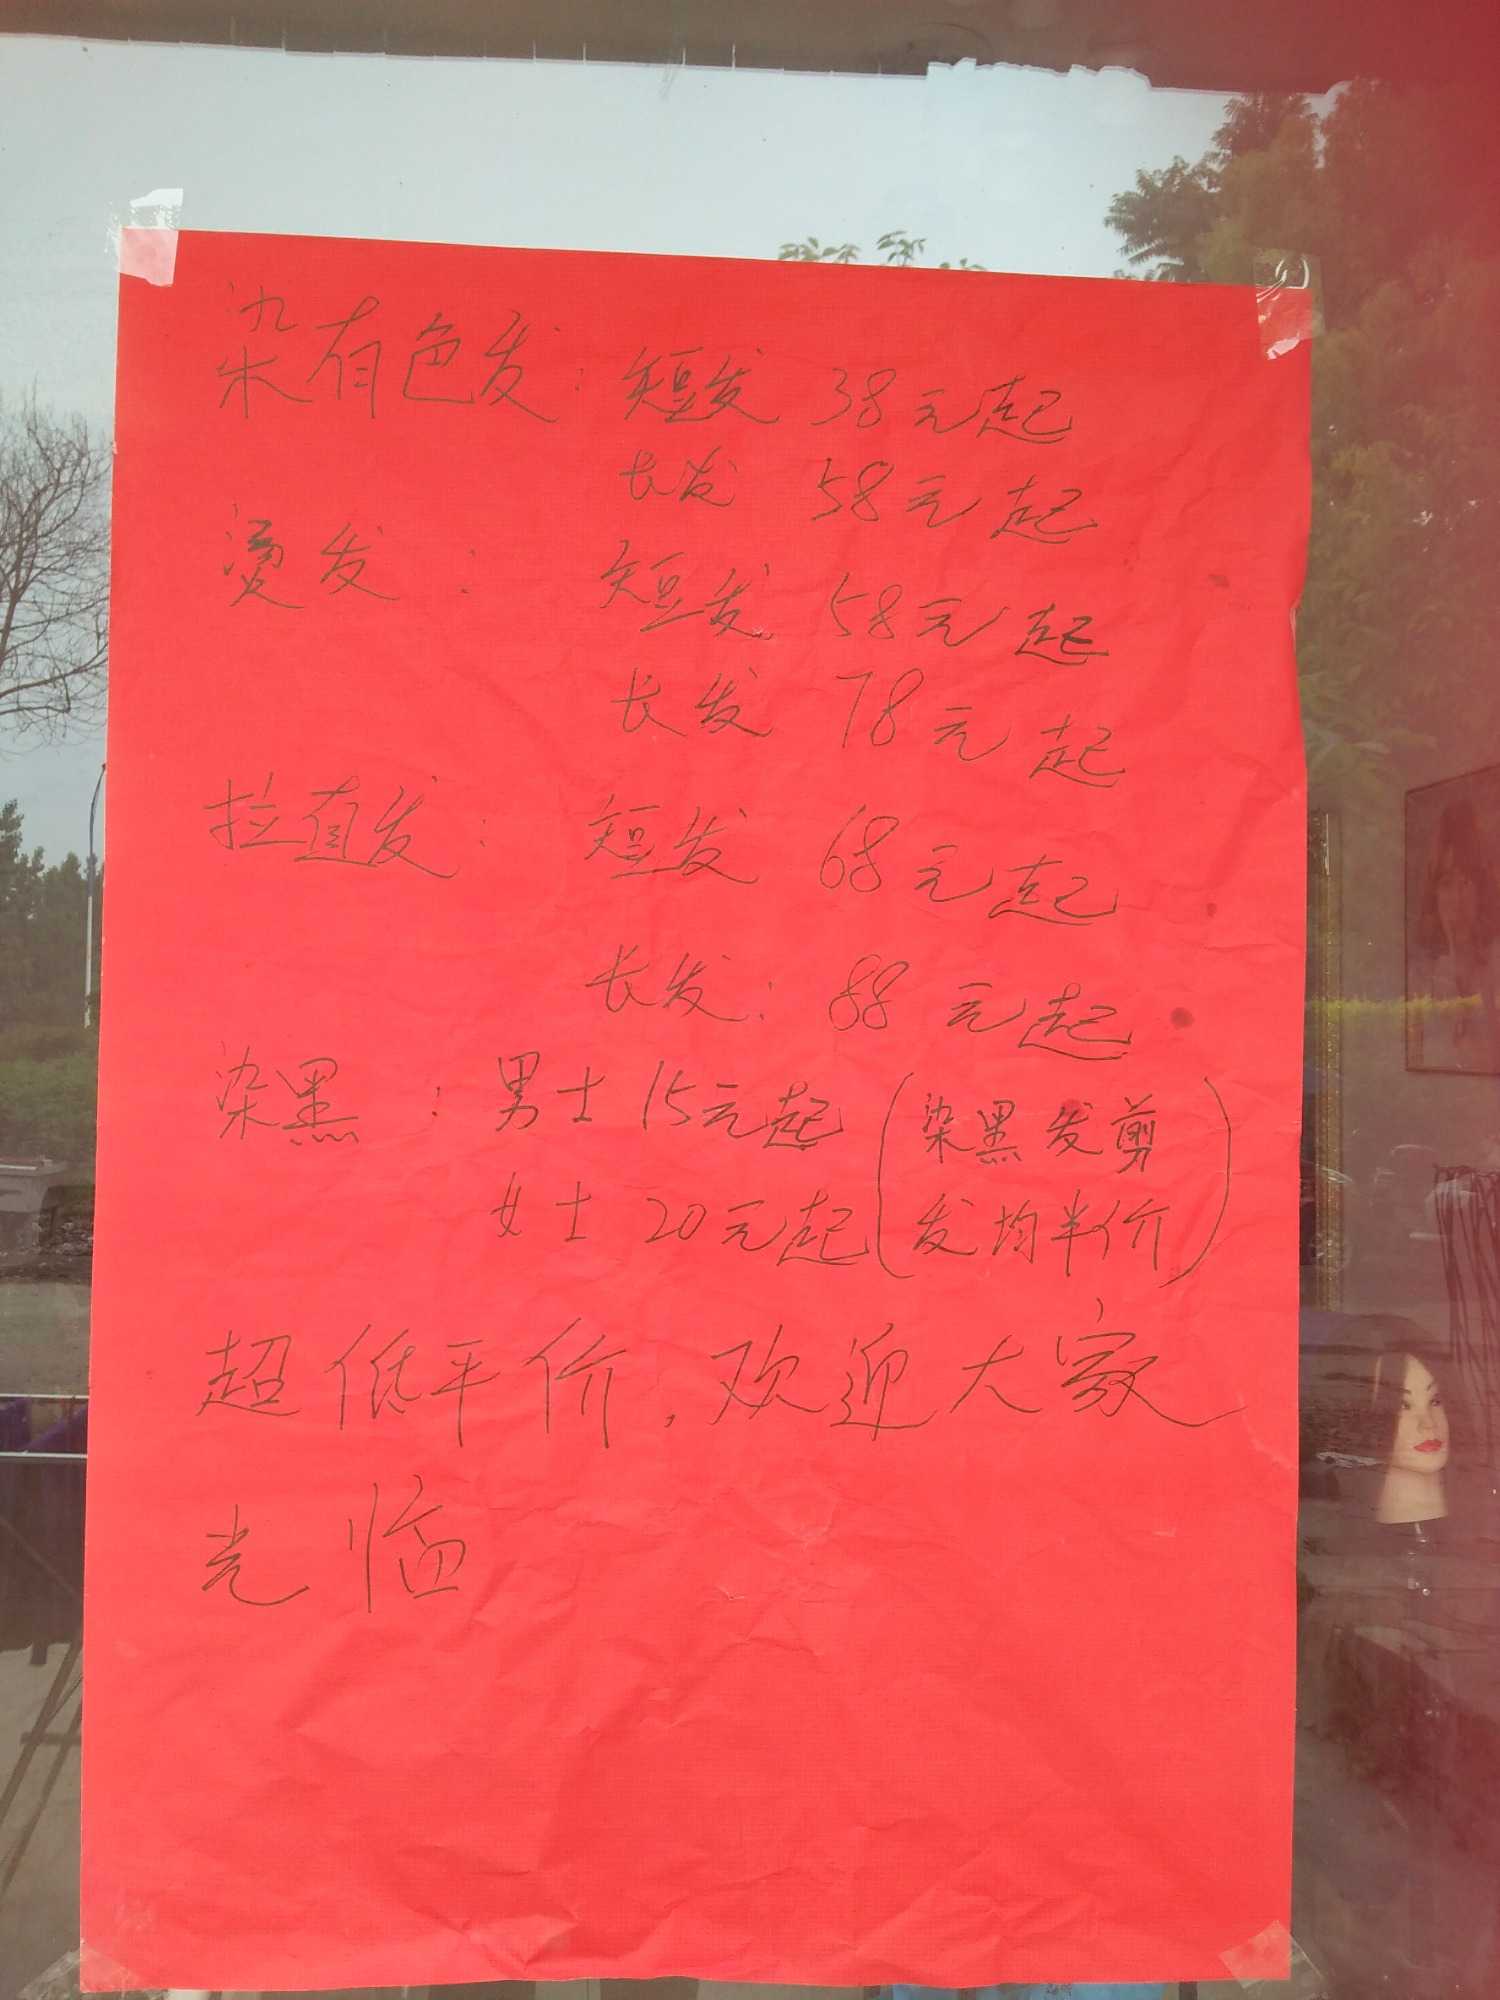 染有色发：短发 38元起
长发 58元起
烫发：短发 58元起
长发 78元起
拉直发：短发 68元起
长发：88元起
染黑：男士 15元起（染黑发剪
女士 20元起 发均半价）
超低平价，欢迎大家
光临